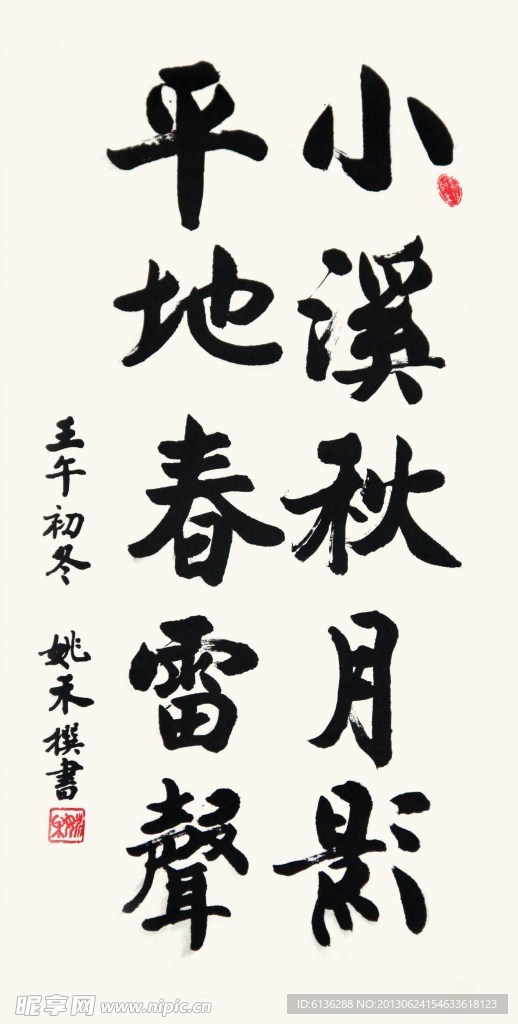 小溪秋月影
平地春雷聲
壬午初冬 姚禾撰書
昵享网 www.nipic.cn
ID:6136288 NO:20130624154633618123